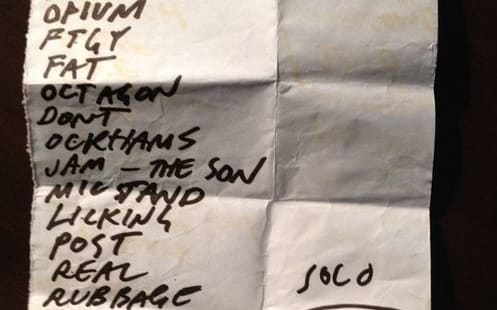 OPIUM
FTGY
FAT
OCTAGON
DONT
OCKHAMS
JAM - THE SON
MIC STAND
LICKING
POST
REAL
SOLO
RUBBAGE